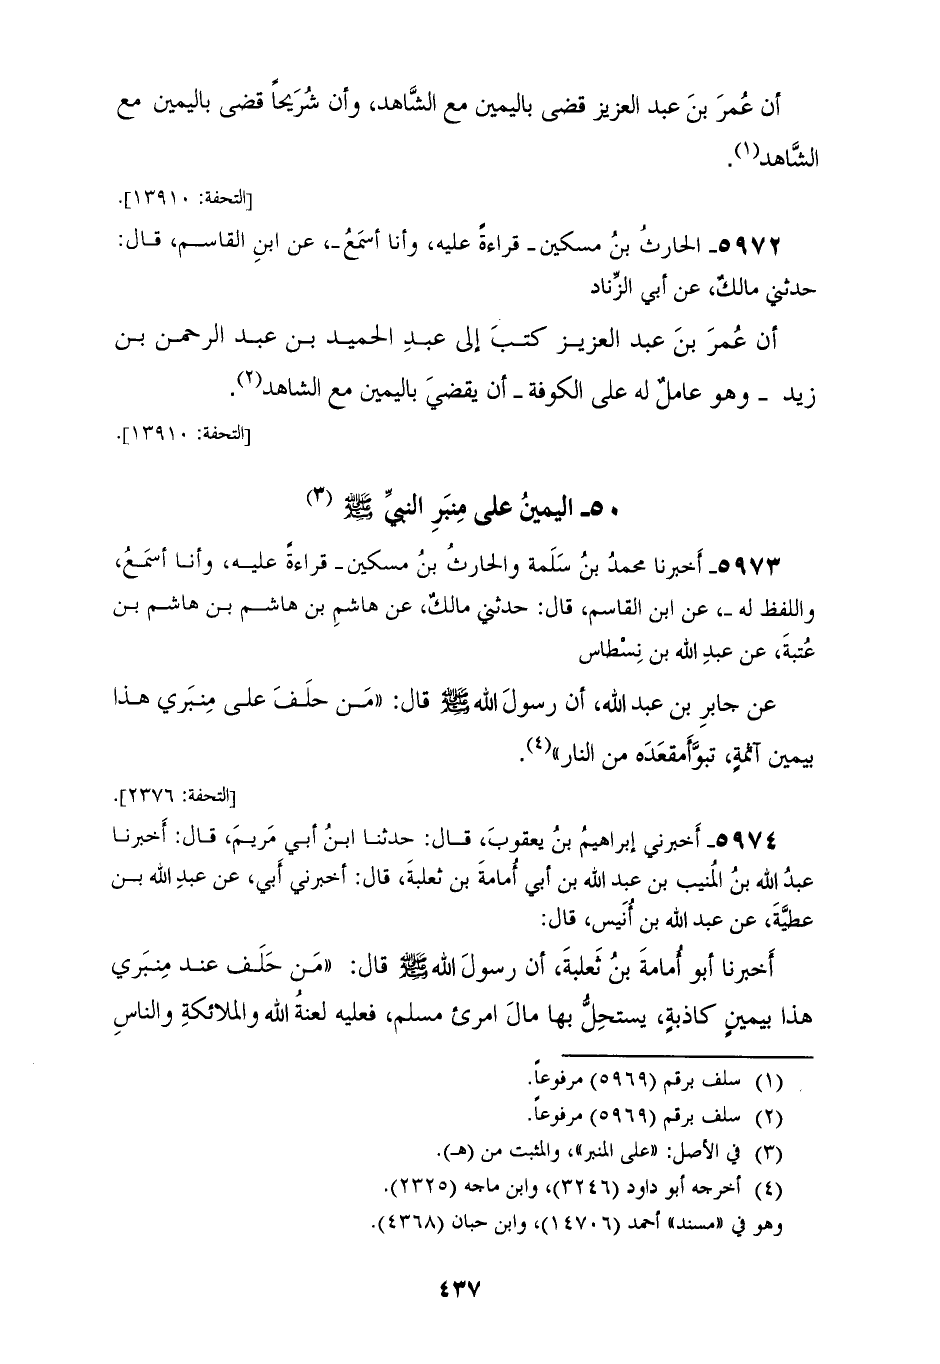 أن عُمرَ بنَ عبد العزيز قضى باليمين مع الشَّاهد، وأن شُرَيحاً قضى باليمين مع
الشَّاهد(١).
[التحفة: ١٣٩١٠].
٥٩٧٢ـ الحارثُ بنُ مسكين ـ قراءةً عليه، وأنا أسمَعُ ـ، عن ابنِ القاسم، قال:
حدثني مالكٌ، عن أبي الزِّناد
أن عُمرَ بنَ عبد العزيز كتبَ إلى عبدِ الحميد بن عبد الرحمن بن
زيد ـ وهو عاملٌ له على الكوفة ـ أن يقضيَ باليمين مع الشاهد(٢).
[التحفة: ١٣٩١٠].
٥٠ـ اليمينُ على مِنبَرِ النبيِّ ﷺ (٣)
٥٩٧٣ـ أَخبرنا محمدُ بنُ سَلَمة والحارثُ بنُ مسكين ـ قراءةً عليه، وأنا أسمَعُ،
واللفظ له ـ، عن ابن القاسم، قال: حدثني مالكٌ، عن هاشمِ بن هاشم بن هاشم بن
عُتبةَ، عن عبدِ الله بن نِسْطاس
عن جابرِ بن عبد الله، أن رسولَ الله ﷺ قال: «مَن حلَفَ على مِنبَري هذا
بيمين آثمةٍ، تبوَّأَ مقعَدَه من النار»(٤).
[التحفة: ٢٣٧٦].
٥٩٧٤ـ أَخبرني إبراهيمُ بنُ يعقوبَ، قال: حدثنا ابنُ أبي مَريمَ، قال: أَخبرنا
عبدُ الله بنُ المُنيب بن عبد الله بن أبي أُمامةَ بن ثعلبةَ، قال: أخبرني أَبي، عن عبدِ الله بن
عطيَّةَ، عن عبد الله بن أُنَيس، قال:
أَخبرنا أبو أُمامةَ بنُ ثَعلبةَ، أن رسولَ الله ﷺ قال: «مَن حَلَف عند مِنبَري
هذا بيمينٍ كاذبةٍ، يستحِلُّ بها مالَ امرئ مسلم، فعليه لعنةُ الله والملائكةِ والناسِ
(١) سلف برقم (٥٩٦٩) مرفوعاً.
(٢) سلف برقم (٥٩٦٩) مرفوعاً.
(٣) في الأصل: «على المنبر»، والمثبت من (هـ).
(٤) أخرجه أبو داود (٣٢٤٦)، وابن ماجه (٢٣٢٥).
وهو في «مسند» أحمد (١٤٧٠٦)، وابن حبان (٤٣٦٨).
٤٣٧